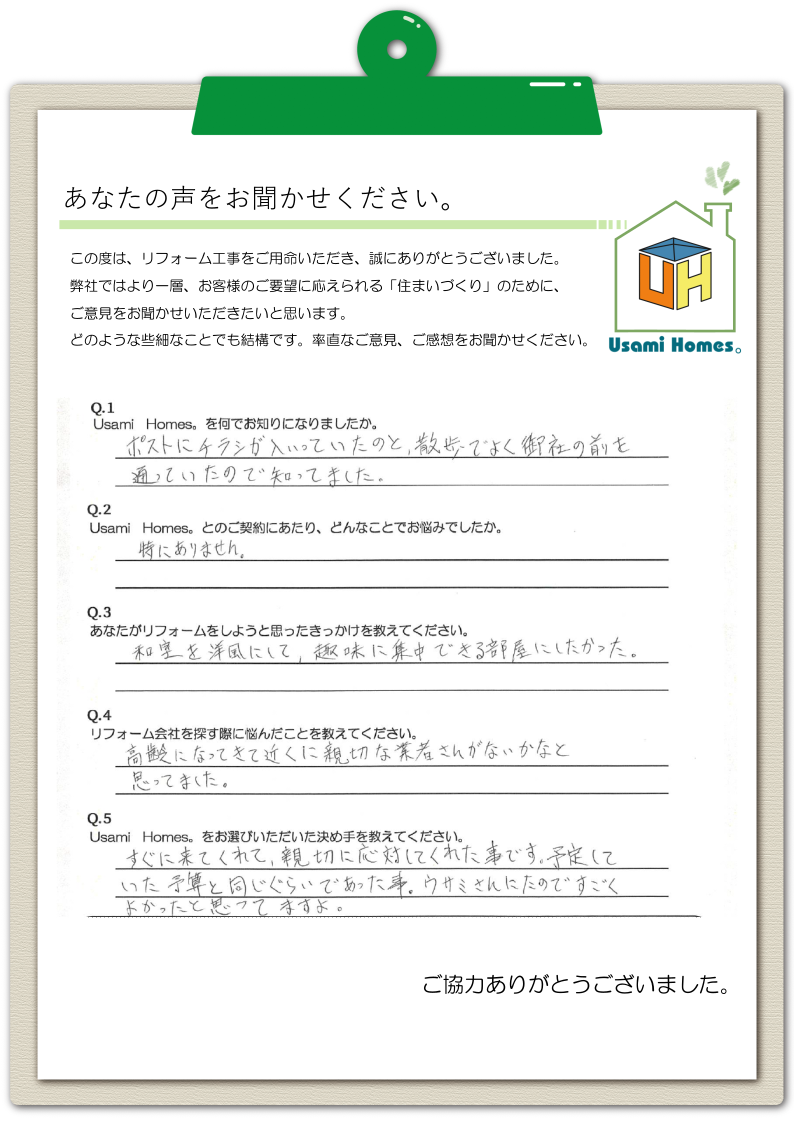 あなたの声をお聞かせください。
この度は、リフォーム工事をご用命いただき、誠にありがとうございました。
弊社ではより一層、お客様のご要望に応えられる「住まいづくり」のために、
ご意見をお聞かせいただきたいと思います。
どのような些細なことでも結構です。率直なご意見、ご感想をお聞かせください。
UH
Usami Homes。
Q.1
Usami Homes。を何でお知りになりましたか。
ポストにチラシが入いっていたのと、散歩でよく御社の前を
通っていたので知ってました。
Q.2
Usami Homes。とのご契約にあたり、どんなことでお悩みでしたか。
特にありません。
Q.3
あなたがリフォームをしようと思ったきっかけを教えてください。
和室を洋風にして、趣味に集中できる部屋にしたかった。
Q.4
リフォーム会社を探す際に悩んだことを教えてください。
高齢になってきて近くに親切な業者さんがないかなと
思ってました。
Q.5
Usami Homes。をお選びいただいた決め手を教えてください。
すぐに来てくれて、親切に応対してくれた事です。予定して
いた予算と同じぐらいであった事。ウサミさんにたのですごく
よかったと思ってますよ。
ご協力ありがとうございました。